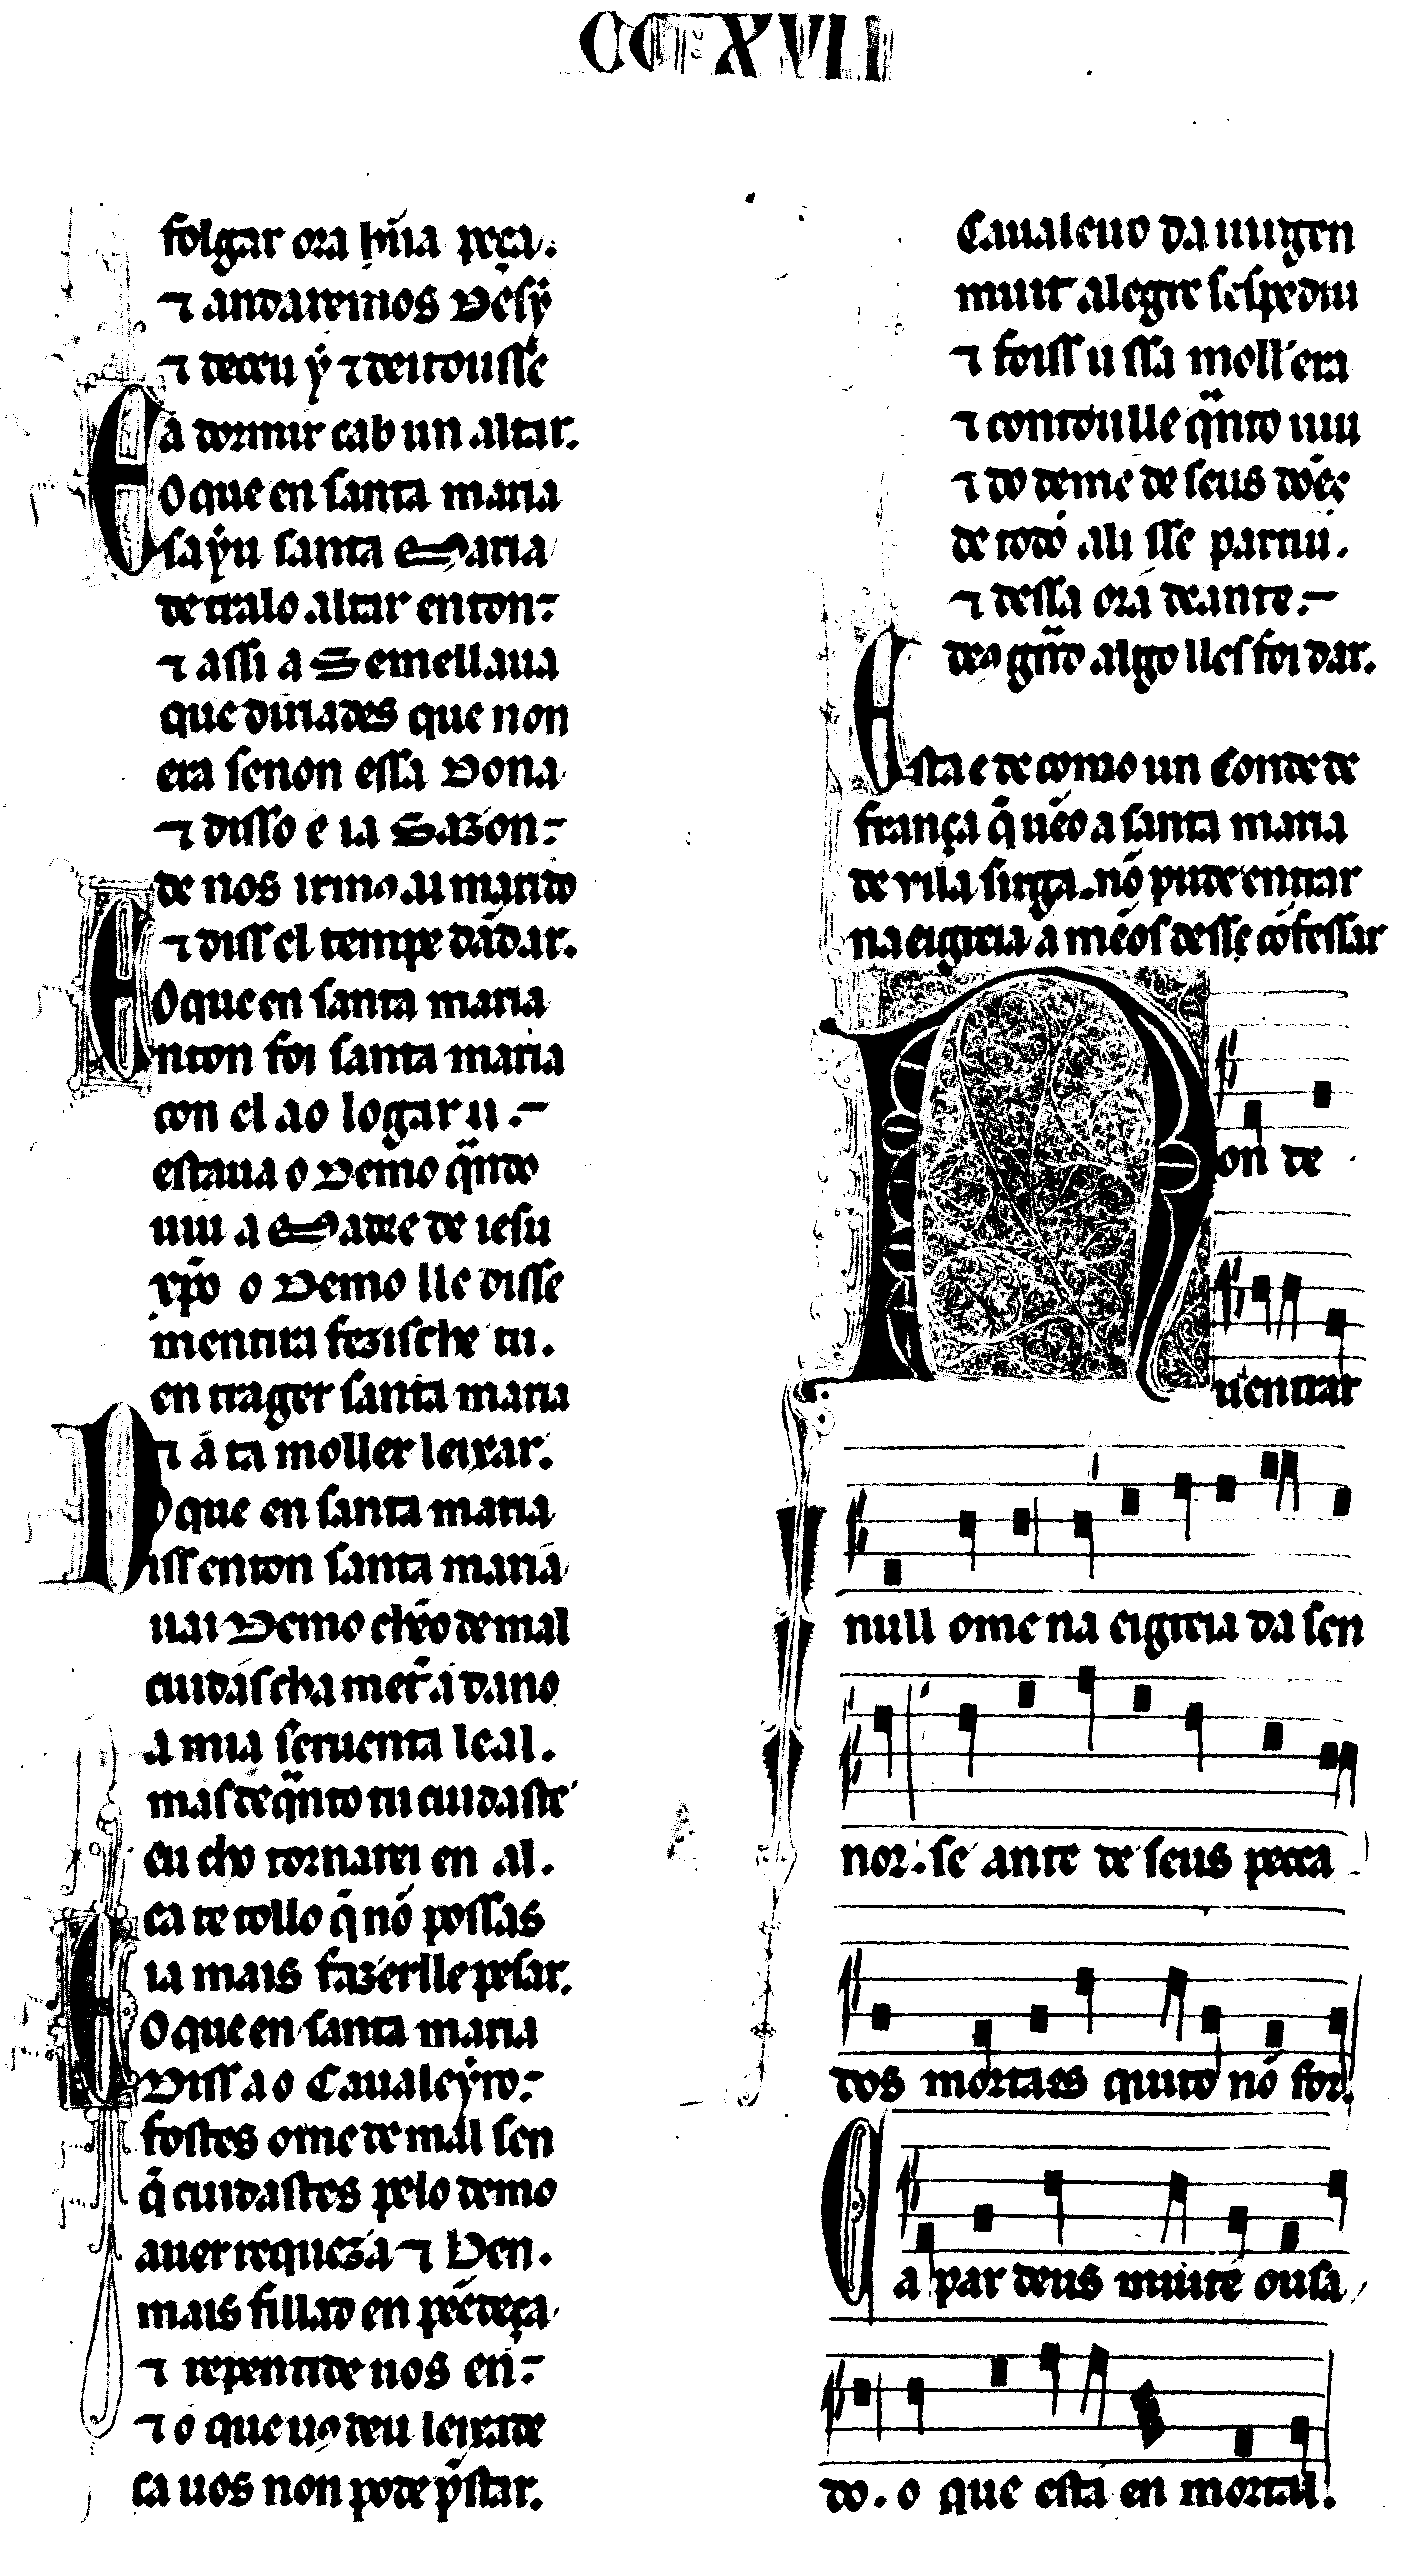 CCXVII
folgar ora hũa peça.
⁊ andaremos desẏ
⁊ deceu ẏ ⁊ deitousse
a dormir cab un altar.
O que en santa maria
E saẏu santa Maria
de tralo altar enton:
⁊ assi a Semellaua
que diriades que non
era senon essa Dona
⁊ disso e ia Sazon:
de nos irmos au marido
⁊ diss el tempe dãdar.
O que en santa maria
Enton foi santa maria
con el ao logar u.
estaua o Demo qndo
uiu a Madre de iesu
xpo o Demo lle disse
mentira fezische tu.
en trager santa maria
⁊ a ta moller leixar.
O que en santa maria
Diss enton santa maria
uai Demo chẽo de mal
cuidasch a meter a dano
a mia seruenta leal.
mas de qnto tu cuidaste
eu cho tornarei en al.
ca te tollo q̃ nõ possas
ia mais fazerlle pesar.
O que en santa maria
E Diss ao Caualeẏro:
fostes ome de mal sen
q̃ cuidastes pelo demo
auer requeza ⁊ ben.
mais fillad en pẽedẽça
⁊ repentide uos en:
⁊ o que uos deu leixade
ca uos non pode p̃star.
Caualeiro da uirgen
muit alegre s espediu
⁊ foiss u ssa moll'era
⁊ contoulle qnto uiu
⁊ do deme de seus dões
de todo ali sse partiu.
⁊ dessa ora deante.
deos gñd algo lles foi dar.
Esta e de como un Conde de
frança q̃ uẽo a santa maria
de vila sirga nõ pude entrar
na eigreia a mẽos de sse cõfessar
Non de
u entrar
null ome na eigreia da sen
nor. se ante de seus pecca
dos mortaes quito nõ for.
Ca par deus muit e ousa
do. o que esta en mortal.